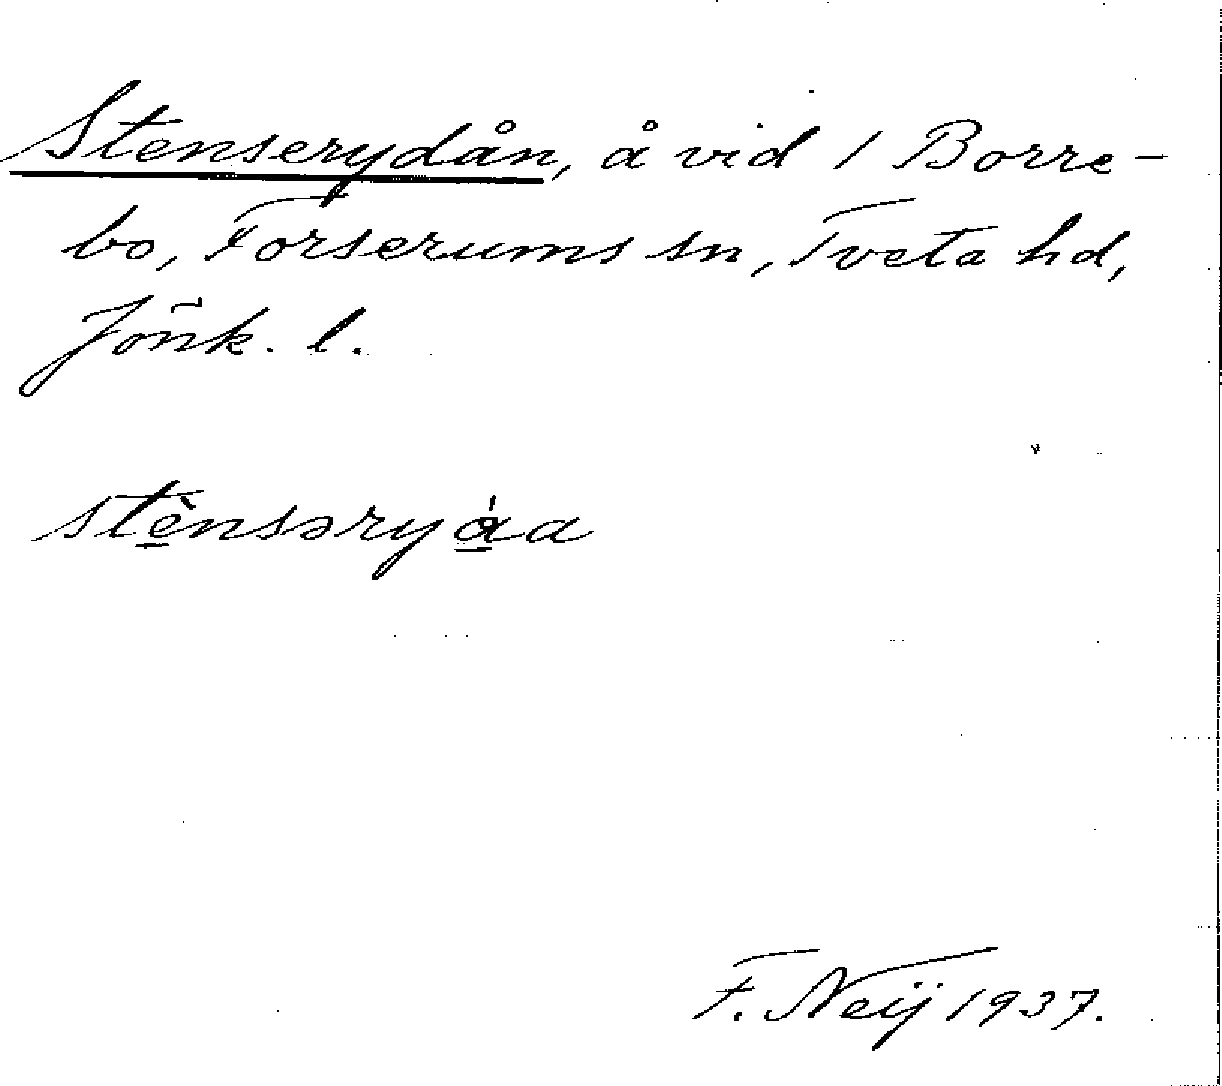 Stenserydån, å vid 1 Borre-
bo, Forserums sn, Tveta hd,
Jönk. l.
stè̠nsəryá̠a
F. Neij 1937.